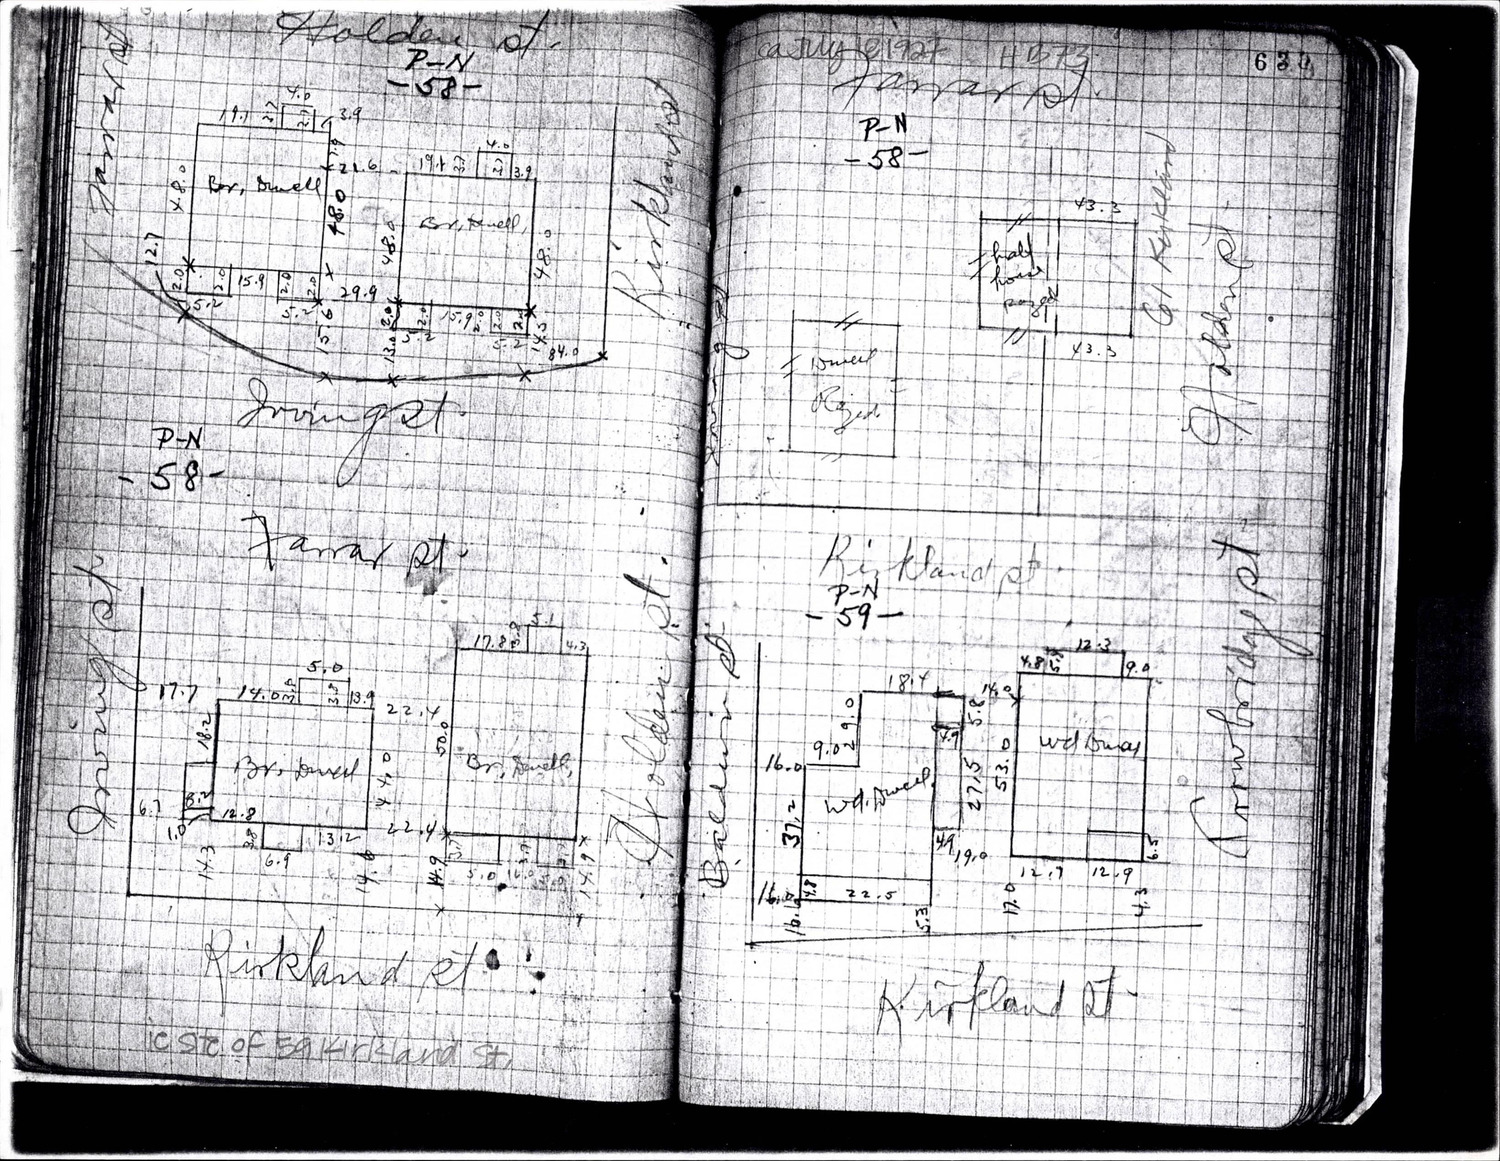 Holden st.
P-N
-58-
Farrar st
Kirkland st
4.0
19.1
3.9
21.6
48.0
Br, Dwell
48.0
12.7
2.0
2.0
15.9
2.0
2.0
5.2
5.2
29.9
15.6
4.0
19.1
3.9
48.0
Br, Dwell,
48.0
15.9
5.2
5.2
13.0
84.0
Irving st.
P-N
-58-
Farrar st.
Irving st.
Holden st.
17.7
5.0
14.0
13.9
22.4
18.2
Br, Dwell
44.0
6.7
8.2
1.0
12.8
13.2
22.4
3.8
6.9
14.3
14.6
17.8
5.1
4.3
50.0
Br, Dwell,
5.0
14.9
14.9
Kirkland st
c st c of 59 Kirkland St,
ca July 18 1927 HB73
634
Farrar st.
P-N
-58-
Irving st
43.3
half
house
razed
43.3
61 Kirkland
Holden st.
Dwell
Razed
Kirkland st.
P-N
-59-
Baldwin st.
Trowbridge st
18.4
5.8
29.0
9.0
4.9
16.0
Wd. Dwell.
27.5
37.2
4.9
19.0
16.0
4.8
22.5
5.3
12.3
4.8
9.0
14.0
Wd Dwell
53.0
6.5
12.9
17.0
4.3
Kirkland st.